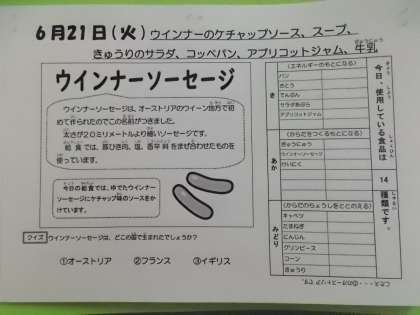 6月21日(火)ウインナーのケチャップソース、スープ、
きゅうりのサラダ、コッペパン、アプリコットジャム、牛乳
ウインナーソーセージ
ウインナーソーセージは、オーストリアのウイーン地方で初
めて作られたのでこの名前がつきました。
太さが20ミリメートルより細いソーセージです。
給食では、豚ひき肉、塩、香辛料をまぜ合わせたものを
使っています。
今日の給食では、ゆでたウインナー
ソーセージにケチャップ味のソースをか
けています。
クイズ ウインナーソーセージは、どこの国で生まれたでしょうか?
①オーストリア ②フランス ③イギリス
今日、使用している食品は
14
種類です。
き
(エネルギーのもとになる)
パン
さとう
でんぷん
サラダあぶら
アプリコットジャム
あか
(からだをつくるもとになる)
ぎゅうにゅう
ウインナーソーセージ
けいにく
みどり
(からだのちょうしをととのえる)
キャベツ
たまねぎ
にんじん
グリンピース
コーン
きゅうり